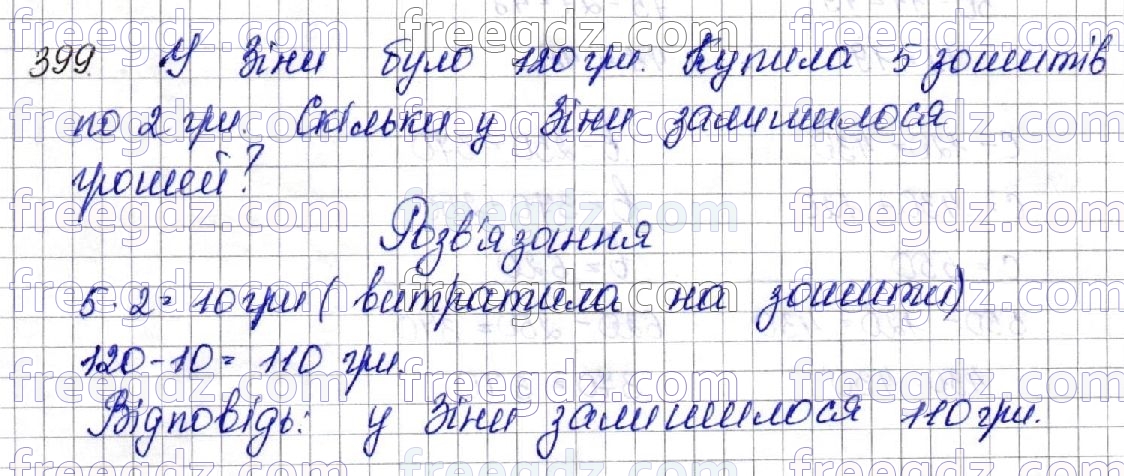 399. У Зіни було 120 грн. Купила 5 зошитів
по 2 грн. Скільки у Зіни залишилося
грошей?
Розв'язання
5·2=10 грн (витратила на зошити)
120-10= 110 грн.
Відповідь: у Зіни залишилося 110 грн.